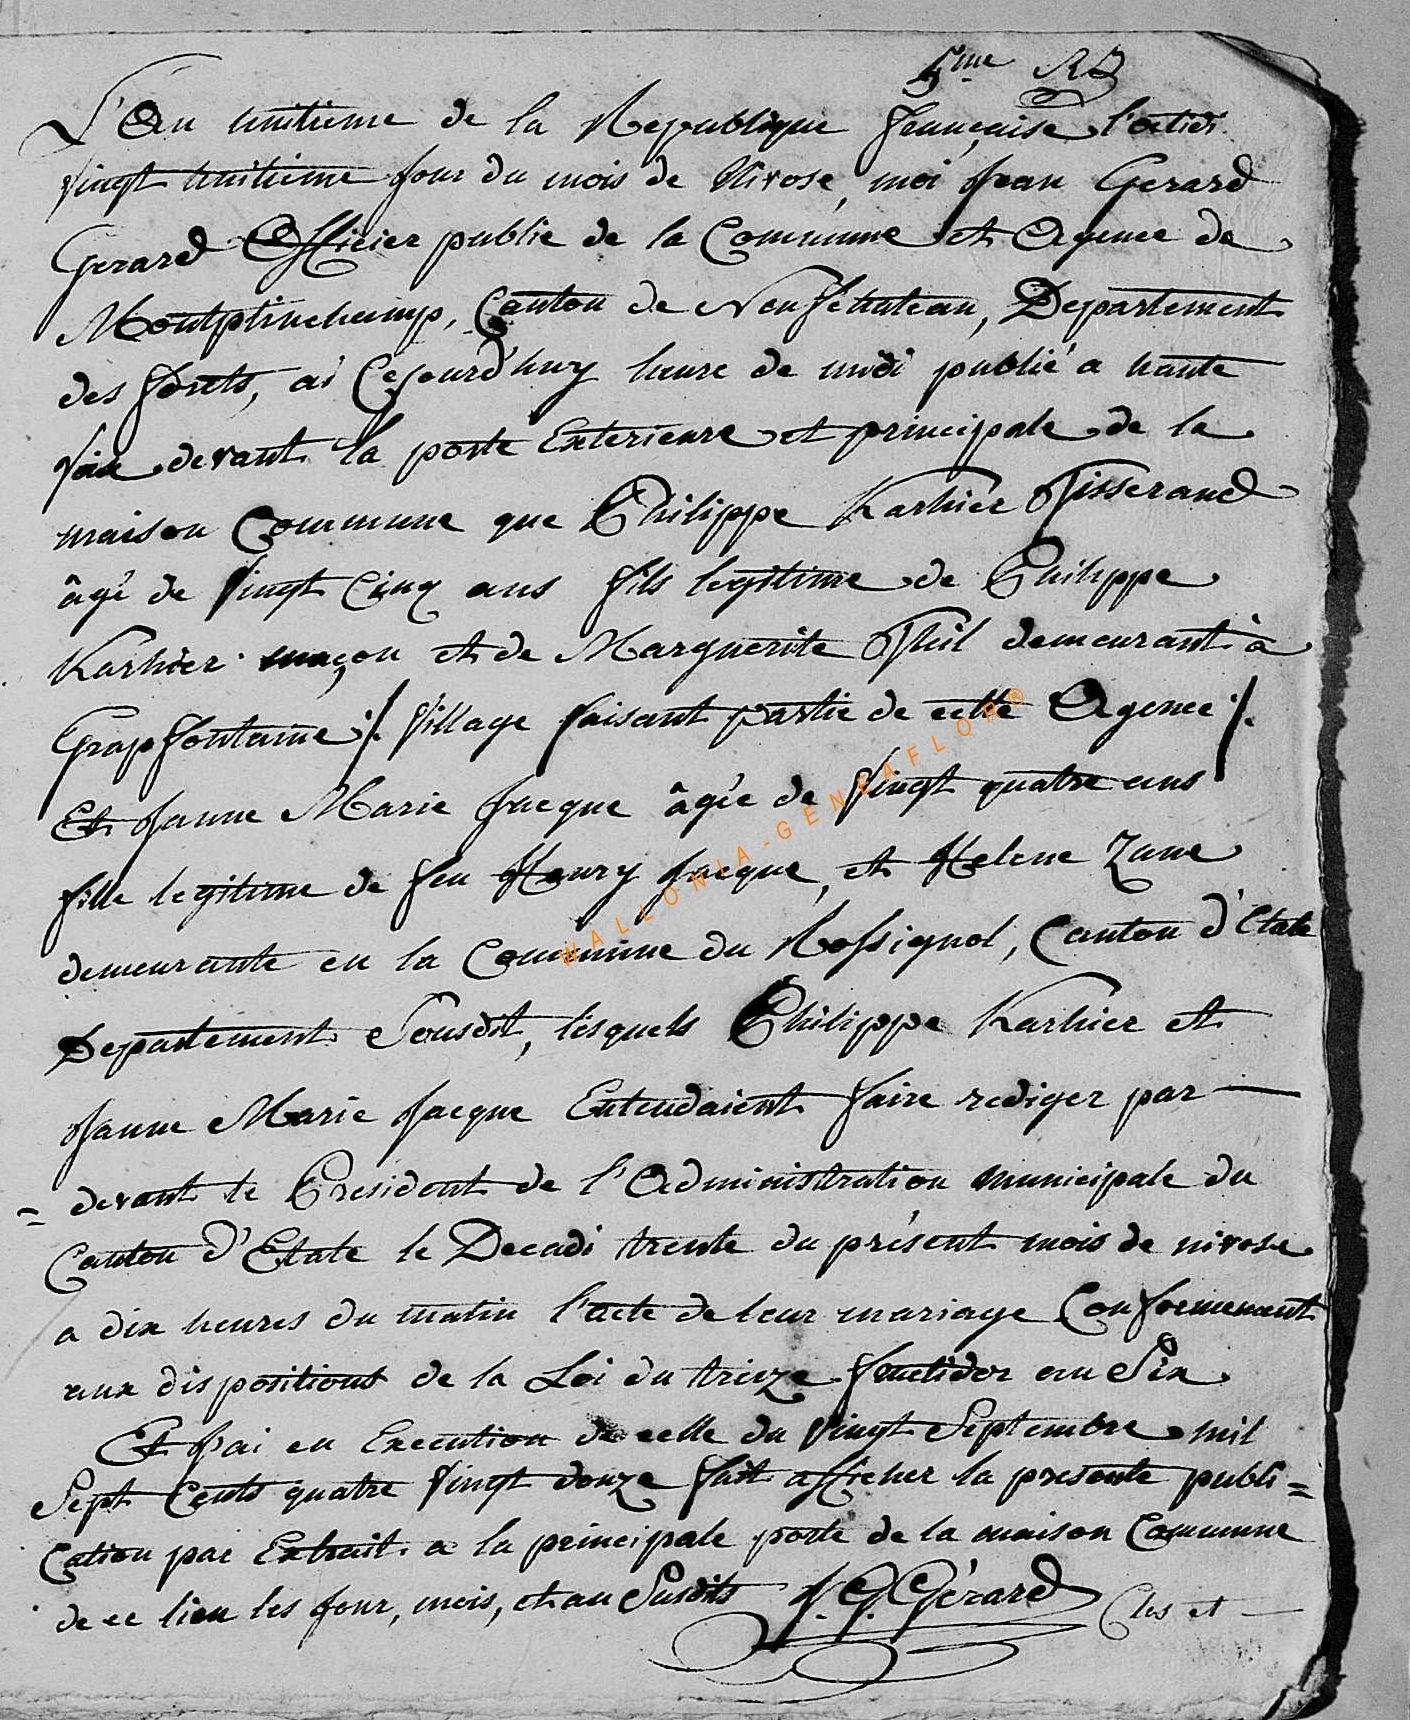 5me
L'An huitieme de la Republique françaisé l'octidi
Vingt huitieme jour du mois de Nivose, moi Jean Gerard
Gerard Officier public de la Commune et Agence de
Montplinchamp, Canton de Neufchateau, Departement
des forets, ai Cejourd'huy heure de midi publié a haute
Voix devant la porte Exterieure et principale de la
maison Commune que Philippe Karhier Tisserand
âgé de Vingt Cinq ans fils legitime de Philippe
Karhier maçon et de Marguerite Thil demeurant à
Grapfontaine /. Village faisant partie de cette Agence /.
Et Janne Marie Jacque âgée de Vingt quatre ans
fille legitime de feu Henry Jacque, et Helene Zane
demeurante en la Commune du Rossignol, Canton d'Etale
Departement Sousdit, lesquels Philippe Karhier et
Janne Marie Jacque Entendaient faire rediger par
= devant le President de l'Administration municipale du
Canton d'Etale le Decadi trente du présent mois de nivose
a dix heures du matin l'acte de leur mariage Conformement
aux dispositions de la Loi du treize fructidor an Six
Et J'ai en Execution de celle du Vingt Septembre mil
Sept Cents quatre Vingt douze fait afficher la presente publi=
Cation par Extrait a la principale porte de la maison Commune
de ce lieu les jour, mois, et an Susdits J. G. Gérard
WALLONIA-GENEAFLOR®